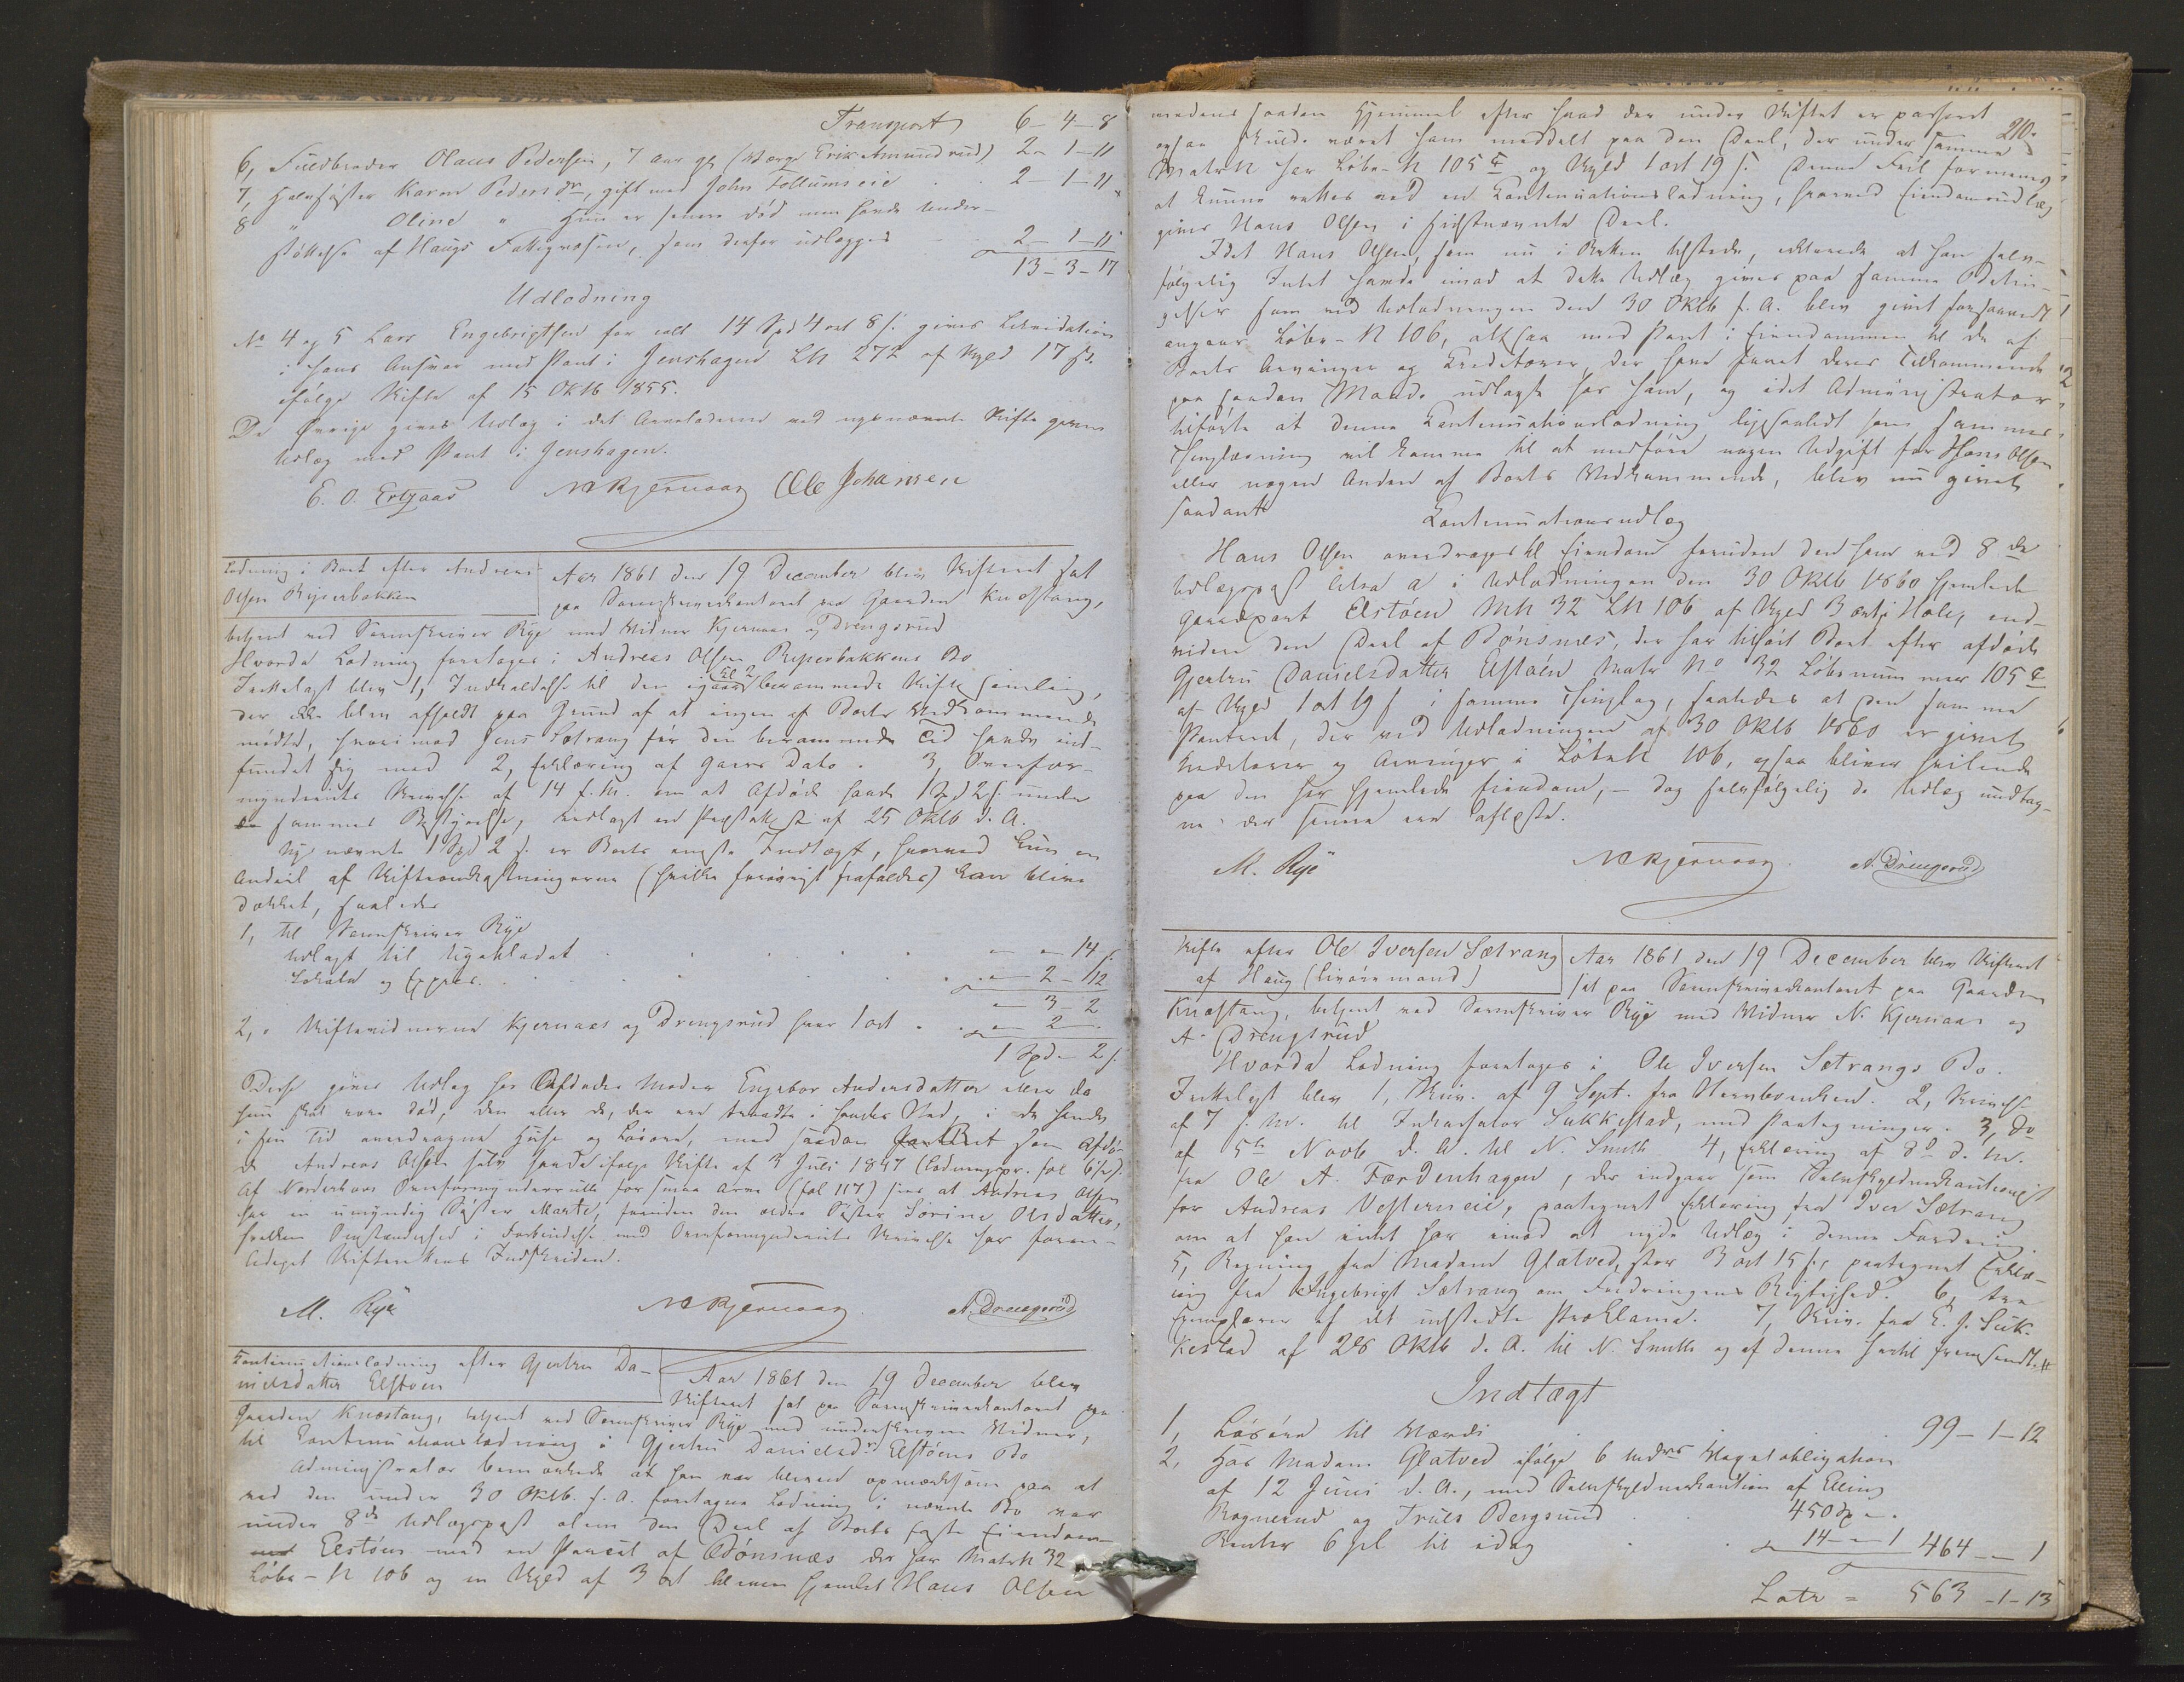 Transport 6 - 4 - 8
6, Fuldbroder Olaus Pedersen, 7 Aar gl (Værge Erik Amundrud) 2 - 1 - 11
7, Halvsøster Karen Pedersdr, gift med John Follumseie . . 2 - 1 - 11
8 " Oline " Hun er senere død men havde Under-
støttelse af Haugs Fattigvæsen, som derfor udlægges 2 - 1 - 11
13 - 3 - 17
Udlodning
No 4 og 5 Lars Engebrigtsen for ialt 14 Spd 4 ort 8 s. gives Likvidation
i hans Ansvar med Pant i Jenshagen LN 272 af Skyld 17 s.
ifølge Skifte af 15 Oktb 1855.
De Øvrige gives Udlæg i det Arvelodderne ved nysnævnte Skifte givne
Udlæg med Pant i Jenshagen.
E. O. Ertzaas N Kjernaas Ole Johansen
Lodning i Boet efter Andreas
Olsen Ryserbakken
Aar 1861 den 19 December blev Skifteret sat
paa Sorenskriverkontoret paa Gaarden Knæstang,
betjent ved Sorenskriver Rye med Vidner Kjernaas og Drengsrud
Hvorda Lodning foretages i Andreas Olsen Ryserbakkens Bo
Fremlagt blev 1, Indkaldelse til den igaar til 2 berammede Skiftesamling,
der ikke blev afholdt paa Grund af at ingen af Boets Vedkommende
mødte, hvorimod Jens Sætrang før den berammede Tid havde ind-
fundet sig med 2, Erklæring af Gaars Dato. 3, Overfor-
mynderiets Skrivelse af 14 f. M. om at Afdøde havde 1 Spd 2 s. under
sammes Bestyrelse, vedlagt en af 25 Oktb d. A.
Nys nævnte 1 Spd 2 s. er Boets eneste Indtægt, hvorved kun en
Andeel af Skifteomkostningerne (hvilke forøvrigt frafaldes) kan blive
dækket, saaledes
1, til Sorenskriver Rye
Udlagt til Ugebladet . . . . - - 14 s.
Lokale og Expres. . . . - 2 - 12
- 3 - 2
2, " Skiftevidnerne Kjernaas og Drengsrud hver 1 ort . . - 2 - .
1 Spd - 2 s.
Derhos gives Udlæg for Afdødes Moder Engebor Andersdatter eller da
hun skal være død, den eller de, der ere traadte i hendes Sted, i de hende
i sin Tid overdragne Huse og Løsøre, med saadan Ret som Afdø-
de Andreas Olsen selv havde ifølge Skifte af 3 Juli 1847 (Lodningspr. fol 61/2).
Af Norderhovs Overformynderrulle for smaa Arve (fol 117) sees at Andreas Olsen
har en umyndig Søster Marte, foruden den ældre Søster Sørine Olsdatter,
hvilken Omstændighed i Forbindelse med Overformynderiets Skrivelse har foran-
lediget Skifterettens Indskriden.
M. Rye N Kjernaas A. Drengsrud
Kontinuationslodning efter Gjertru Da-
nielsdatter Elstøen
Aar 1861 den 19 December blev
Skifteret sat paa Sorenskriverkontoret paa
Gaarden Knæstang, betjent ved Sorenskriver Rye med underskrevne Vidner,
til Kontinuationslodning i Gjertru Danielsdr Elstøens Bo
Administrator bemærkede at han var bleven opmærksom paa at
ved den under 30 Oktb. f. A. foretagne Lodning i nævnte Bo var
under 8de Udlægspost alene den Deel af Boets faste Eiendom-
Elstøen med en Parcel af Bønsnæs der har Matr N 32
Løbe - N 106 og en Skyld af 3 ort bleven hjemlet Hans Olsen
210.
medens saadan Hjemmel efter hvad der under Skiftet er passeret
ogsaa skulde været ham meddelt paa den Deel, der under samme
Matr N har Løbe - N 105 c og Skyld 1 ort 19 s. Denne Feil formenes
at kunne rettes ved en Kontinuationslodning, hvorved Eiendomsudlæg
gives Hans Olsen i sidstnævnte Deel.
Idet Hans Olsen, som nu i Retten tilstede, erklærede at han selv-
følgelig Intet havde imod at dette Udlæg gives paa samme Betin-
gelser som ved Udlodningen den 30 Oktb f. A. blev givet forsaavidt
angaar Løbe - N 106, altsaa med Pant i Eiendommen til de af
Boets Arvinger og Kreditorer der have faaet deres Tilkommende
paa saadan Maade udlagt hos ham, og idet Administrator
tilføiede at denne Kontinuationslodning ligesaalidt som sammes
Thinglæsning vil komme til at medføre nogen Udgift for Hans Olsen
eller nogen Anden af Boets Vedkommende, blev nu givet
saadant
Kontinuationsudlæg
Hans Olsen overdrages til Eiendom foruden den ham ved 8de
Udlægspost litra a i Udlodningen den 30 Oktb 1860 hjemlede
Gaardpart Elstøen MN 32 LN 106 af Skyld 3 ort i Hole, end-
videre den Deel af Bønsnæs, der har tilhørt Boet efter afdøde
Gjertru Danielsdatter Elstøen Matr No 32 Løbenummer 105 c
af Skyld 1 ort 19 s i samme Thinglag, saaledes at den samme
Panteret, der ved Udlodningen af 30 Oktb 1860 er givet
Kreditorer og Arvinger i Løbe N 106, ogsaa bliver heftende
paa den her hjemlede Eiendom, - dog selvfølgelig de Udlæg undtag-
ne der senere ere aflæste.
M. Rye N Kjernaas. A. Drengsrud
Skifte efter Ole Iversen Sætrang
af Haug (Livøremand)
Aar 1861 den 19 December blev Skifteret
sat paa Sorenskriverkontoret paa Gaarden
Knæstang, betjent ved Sorenskriver Rye med Vidner N. Kjernaas og
A. Drengsrud
Hvorda Lodning foretages i Ole Iversen Sætrangs Bo.
Fremlagt blev 1, Skriv. af 9 Sept. fra Steenbonken. 2, Skrivelse
af 7 f. M. til Inkassator Lukkestad, med Paategninger. 3, do
af 5te Novb d. A. til N. Smith 4, Erklæring af do d. M.
fra Ole A. Færdenhagen, der indgaar som Selvskyldnerkautionist
for Andreas Vesterneie, paategnet Erklæring fra Iver Sætrang
om at han intet har imod at nyde Udlæg i denne Fordring
5, Regning fra Madam Glatved, stor 3 ort 15 s., paategnet Erklæ-
ring fra Engebrigt Sætrang om Fordringens Rigtighed. 6, tre
Exemplarer af det udstedte Proklama. 7, Skriv. fra E. J. Luk-
kestad af 28 Oktb d. A. til N. Smith og af denne hertil fremsendt.
Indtægt
1, Løsøre til Værdi . . . 99 - 1 - 12
2, Hos Madam Glatved ifølge 6 Mdrs Vexelobligation
af 12 Juni d. A., med Selvskyldnerkaution af Elling
Rognerud og Truls Bergsund . . 450 Sp - .
Renter 6 pCt til idag . . 14 - - 1 464 - - 1
Latr = 563 - 1 - 13